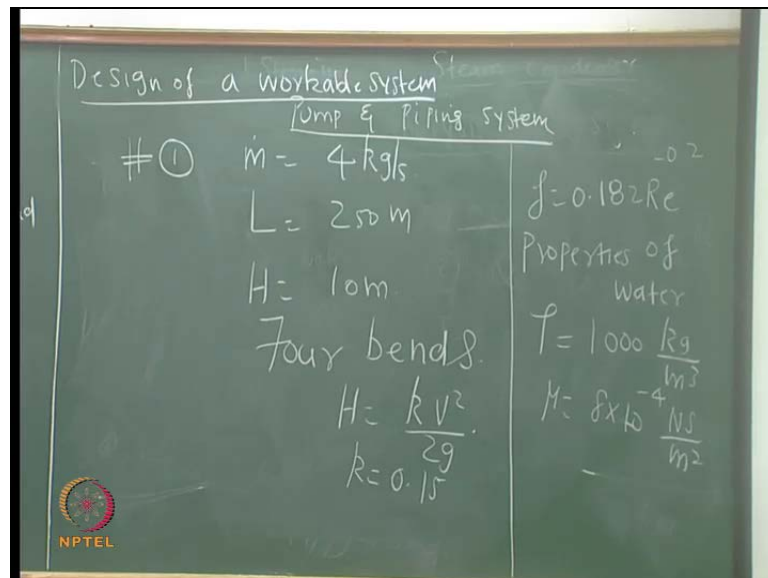 Design of a workable system
Pump & Piping system
#① ṁ = 4 kg/s
L = 250 m
H = 10m
Four bends.
H = kv²/2g.
k = 0.15
f = 0.182Re^-0.2
Properties of
water
ρ = 1000 kg/m³
μ = 8×10^-4 Ns/m²
d
NPTEL